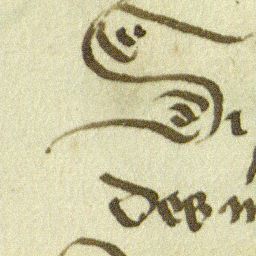 Si
des